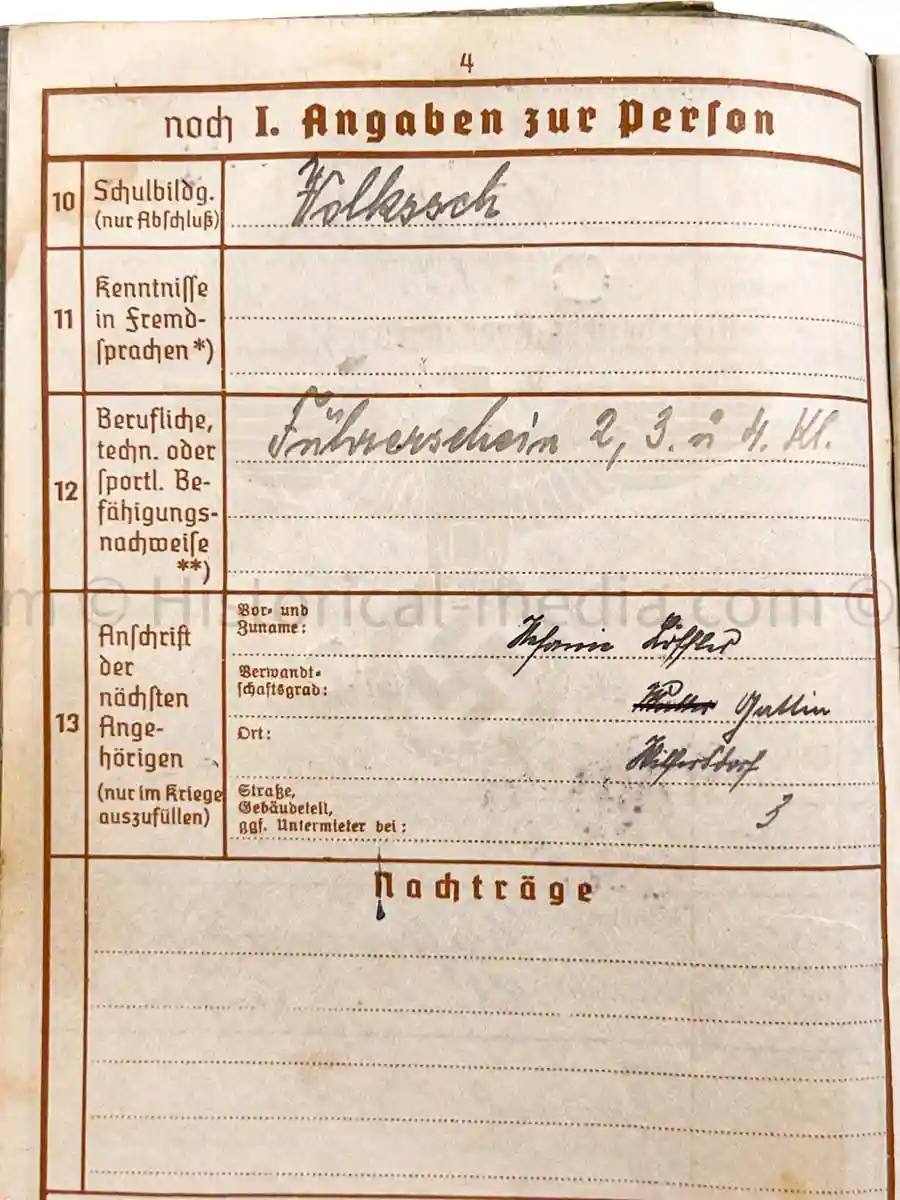 4
noch I. Angaben zur Person
10
Schulbildg.
(nur Abschluß)
Volkssch
11
Kenntnisse
in Fremd-
sprachen *)
12
Berufliche,
techn. oder
sportl. Be-
fähigungs-
nachweise
**)
Führerschein 2, 3. u 4. Kl.
m © Historical-media.com ©
13
Anschrift
der
nächsten
Ange-
hörigen
(nur im Kriege
auszufüllen)
Vor- und
Zuname:
Verwandt-
schaftsgrad:
Mutter Gattin
Ort:
Straße,
Gebäudeteil,
ggf. Untermieter bei:
3
Nachträge